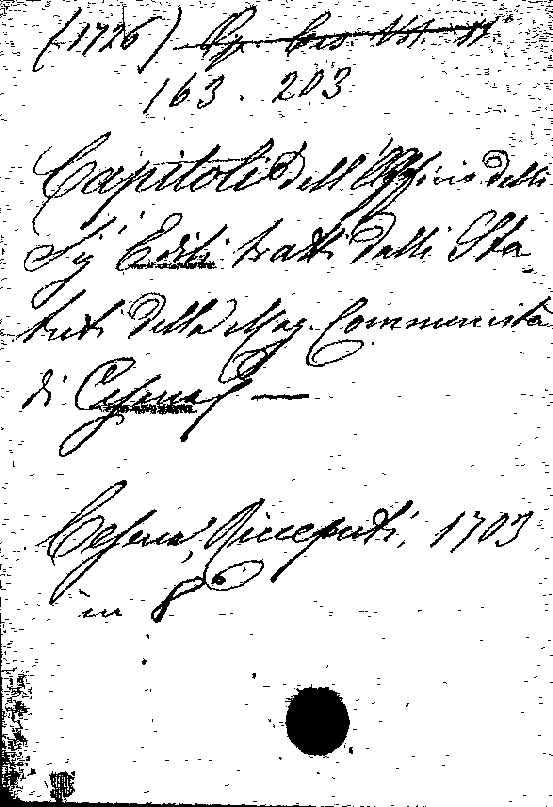 (1726) Op. Ces. Vol. 11
163. 203
Capitoli dell'Offizio delli
Sigi Edili tratti dalli Sta-
tuti della Mag. Communità
di Cesena —
Cesena, Ricceputi, 1703
in 8°